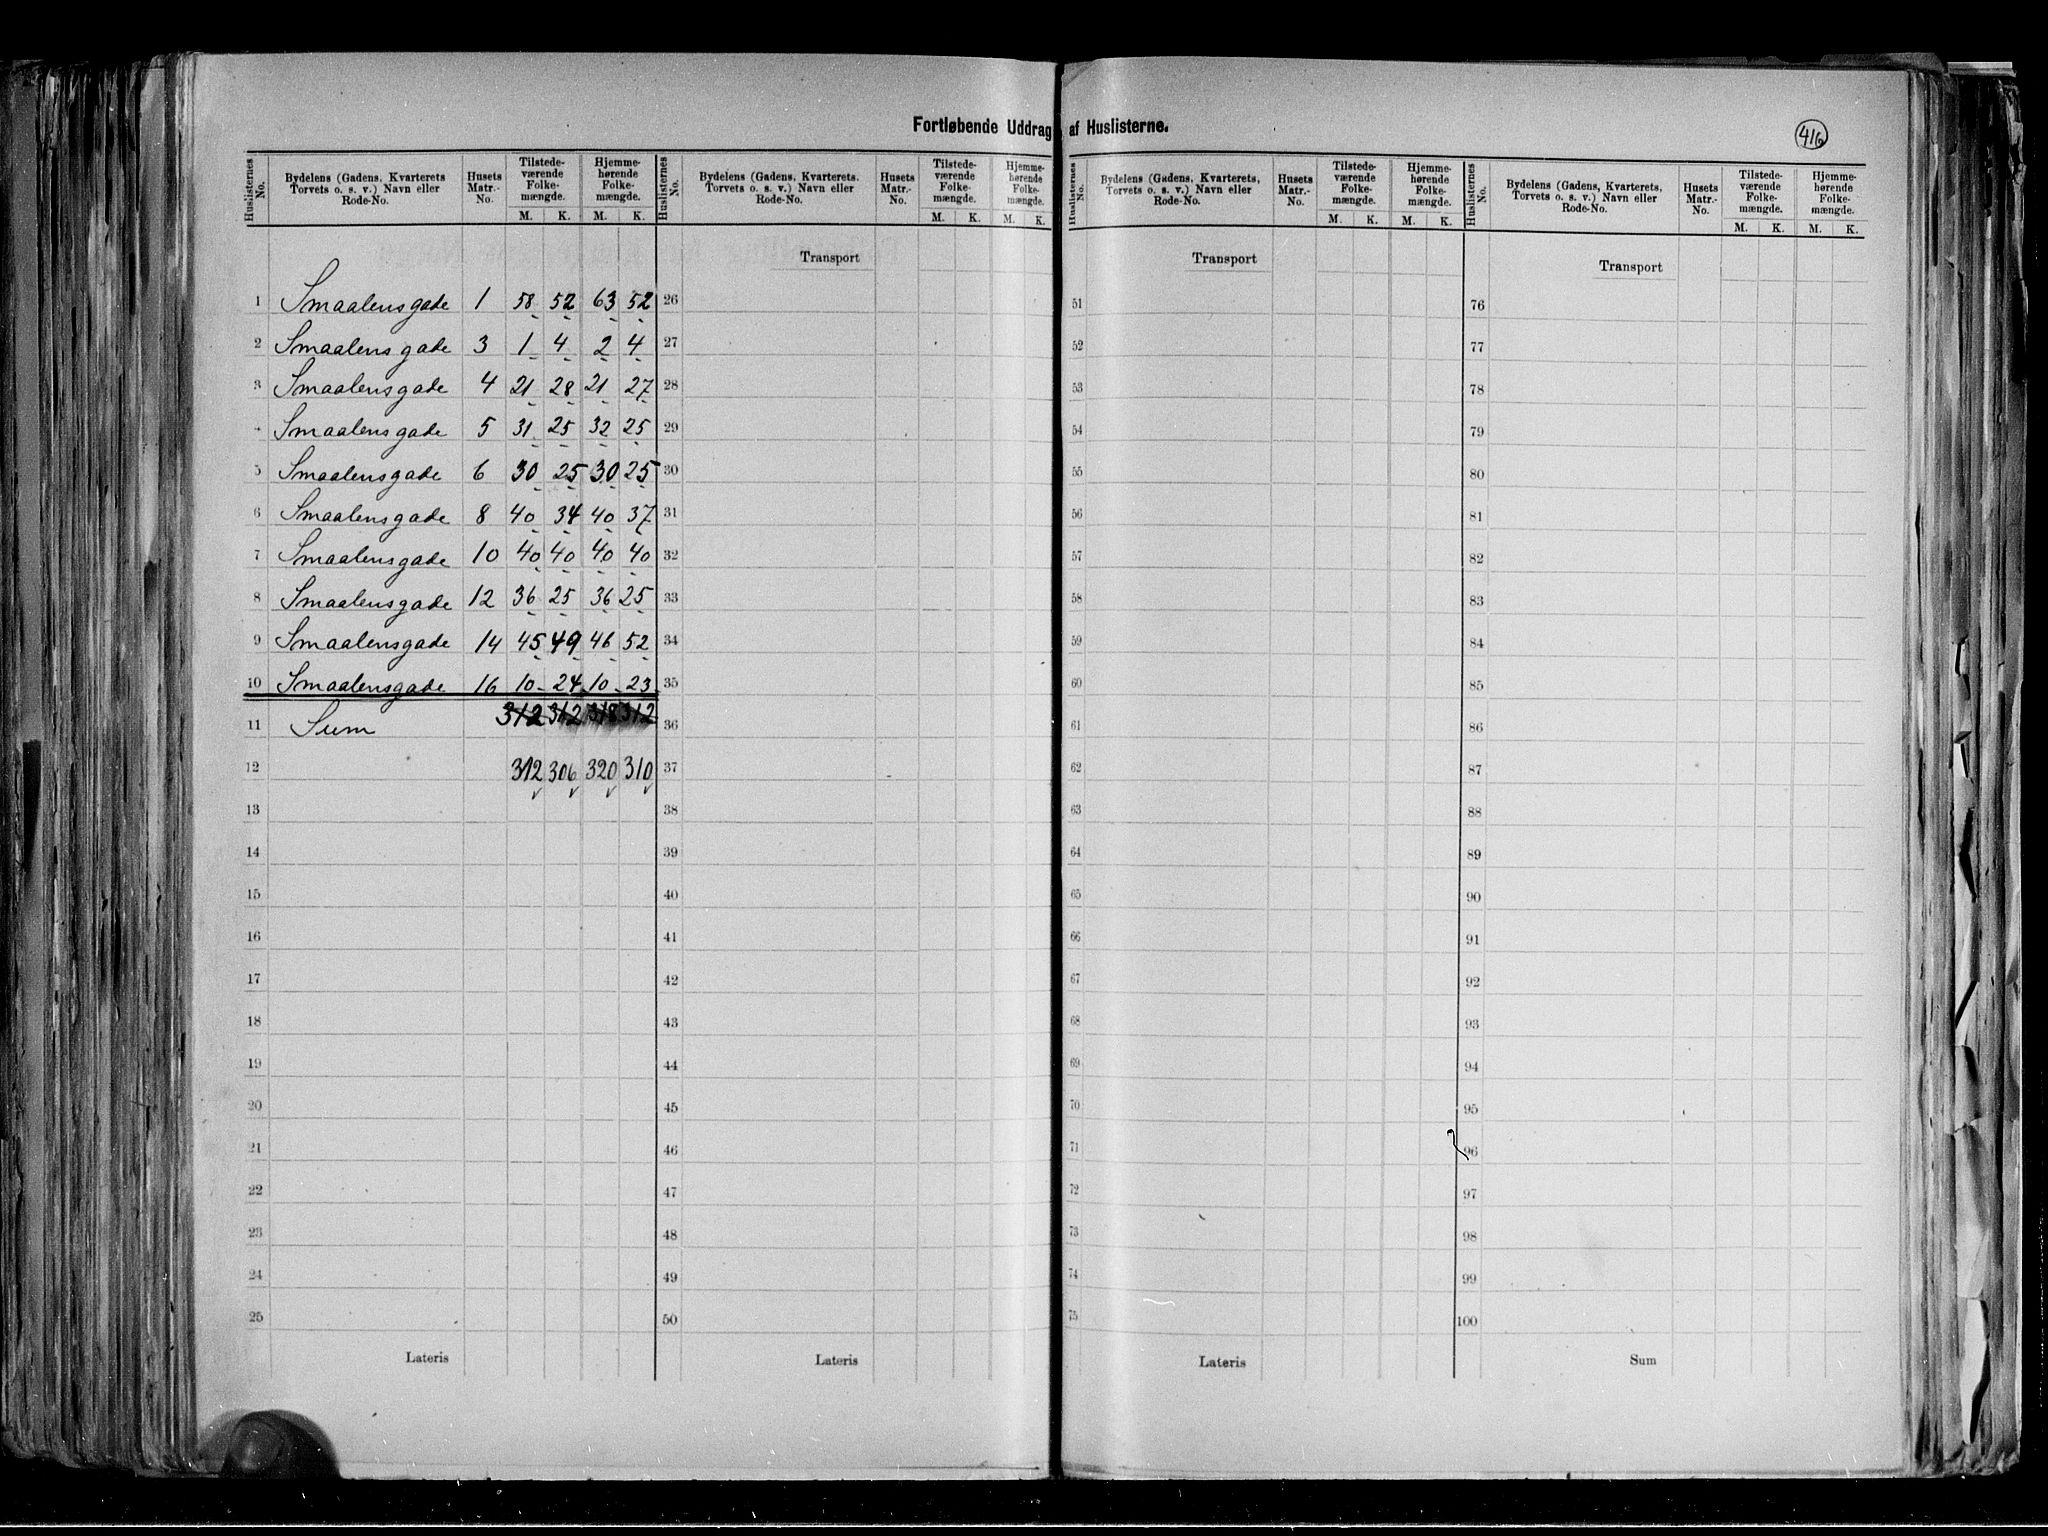 Fortløbende Uddrag af Huslisterne.
416
Huslisternes No. | Bydelens (Gadens, Kvarterets Torvets o. s. v.) Navn eller Rode-No. | Husets Matr.-No. | Tilstedeværende Folkemængde. M. K. | Hjemmehørende Folkemængde. M. K.
1 Smaalensgade 1 58 52 63 52
2 Smaalensgade 3 1 4 2 4
3 Smaalensgade 4 21 28 21 27
4 Smaalensgade 5 31 25 32 25
5 Smaalensgade 6 30 25 30 25
6 Smaalensgade 8 40 34 40 37
7 Smaalensgade 10 40 40 40 40
8 Smaalensgade 12 36 25 36 25
9 Smaalensgade 14 45 49 46 52
10 Smaalensgade 16 10 24 10 23
11 Sum 312 312 318 312
12 312 306 320 310
13
14
15
16
17
18
19
20
21
22
23
24
25
Lateris
Huslisternes No. | Bydelens (Gadens, Kvarterets. Torvets o. s. v.) Navn eller Rode-No. | Husets Matr.-No. | Tilstedeværende Folkemængde. M. K. | Hjemmehørende Folkemængde. M. K.
Transport
26
27
28
29
30
31
32
33
34
35
36
37
38
39
40
41
42
43
44
45
46
47
48
49
50
Lateris
Huslisternes No. | Bydelens (Gadens, Kvarterets, Torvets o. s. v.) Navn eller Rode-No. | Husets Matr.-No. | Tilstedeværende Folkemængde. M. K. | Hjemmehørende Folkemængde. M. K.
Transport
51
52
53
54
55
56
57
58
59
60
61
62
63
64
65
66
67
68
69
70
71
72
73
74
75
Lateris
Huslisternes No. | Bydelens (Gadens, Kvarterets, Torvets o. s. v.) Navn eller Rode-No. | Husets Matr.-No. | Tilstedeværende Folkemængde. M. K. | Hjemmehørende Folkemængde. M. K.
Transport
76
77
78
79
80
81
82
83
84
85
86
87
88
89
90
91
92
93
94
95
96
97
98
99
100
Sum